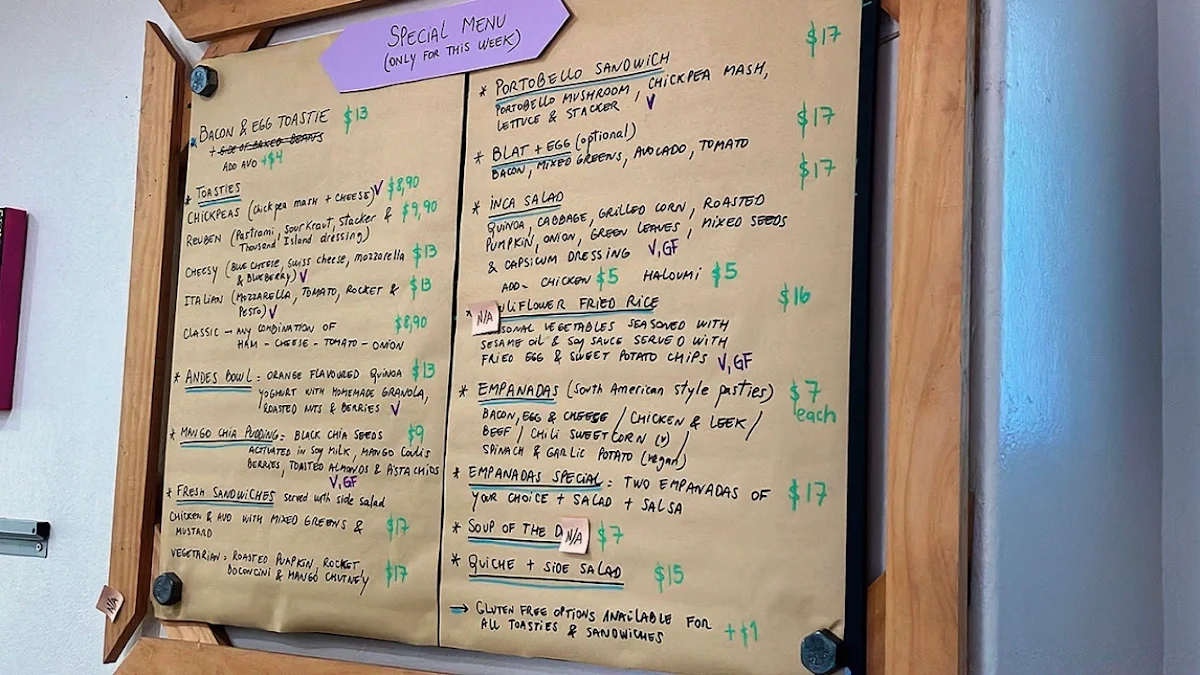 SPECIAL MENU
(ONLY FOR THIS WEEK)
* BACON & EGG TOASTIE $13
+ SIDE OF BAKED BEANS
ADD AVO +$4
* TOASTIES
CHICKPEAS (chickpea mash + CHEESE) V $8,90
REUBEN (Pastrami, Sourkraut, Stacker & $9,90
Thousand Island dressing)
CHEESY (BLUE CHEESE, SWISS CHEESE, MOZZARELLA $13
& BLUEBERRY) V
ITALIAN (MOZZARELLA, TOMATO, ROCKET & $13
PESTO) V
CLASSIC - ANY COMBINATION OF $8,90
HAM - CHEESE - TOMATO - ONION
* ANDES BOWL: ORANGE FLAVOURED QUINOA $13
YOGHURT WITH HOMEMADE GRANOLA,
ROASTED NUTS & BERRIES V
* MANGO CHIA PUDDING: BLACK CHIA SEEDS $9
ACTIVATED IN SOY MILK, MANGO COULIS
BERRIES, TOASTED ALMONDS & PISTACHIOS
V, GF
* FRESH SANDWICHES served with side salad
CHICKEN & AVO WITH MIXED GREENS & $17
MUSTARD
VEGETARIAN: ROASTED PUMPKIN, ROCKET,
BOCONCINI & MANGO CHUTNEY $17
N/A
* PORTOBELLO SANDWICH $17
PORTOBELLO MUSHROOM, CHICKPEA MASH,
LETTUCE & STACKER V
* BLAT + EGG (optional) $17
BACON, MIXED GREENS, AVOCADO, TOMATO
* INCA SALAD $17
QUINOA, CABBAGE, GRILLED CORN, ROASTED
PUMPKIN, ONION, GREEN LEAVES, MIXED SEEDS
& CAPSICUM DRESSING V, GF
ADD- CHICKEN $5 HALOUMI $5
* N/A ULIFLOWER FRIED RICE $16
SONAL VEGETABLES SEASONED WITH
SESAME OIL & SOY SAUCE SERVED WITH
FRIED EGG & SWEET POTATO CHIPS V, GF
* EMPANADAS (South American style pasties) $7
each
BACON, EGG & CHEESE / CHICKEN & LEEK /
BEEF / CHILI SWEETCORN (v) /
SPINACH & GARLIC POTATO (vegan)
* EMPANADAS SPECIAL: TWO EMPANADAS OF $17
YOUR CHOICE + SALAD + SALSA
* SOUP OF THE D N/A $7
* QUICHE + SIDE SALAD $15
→ GLUTEN FREE OPTIONS AVAILABLE FOR
ALL TOASTIES & SANDWICHES +$1